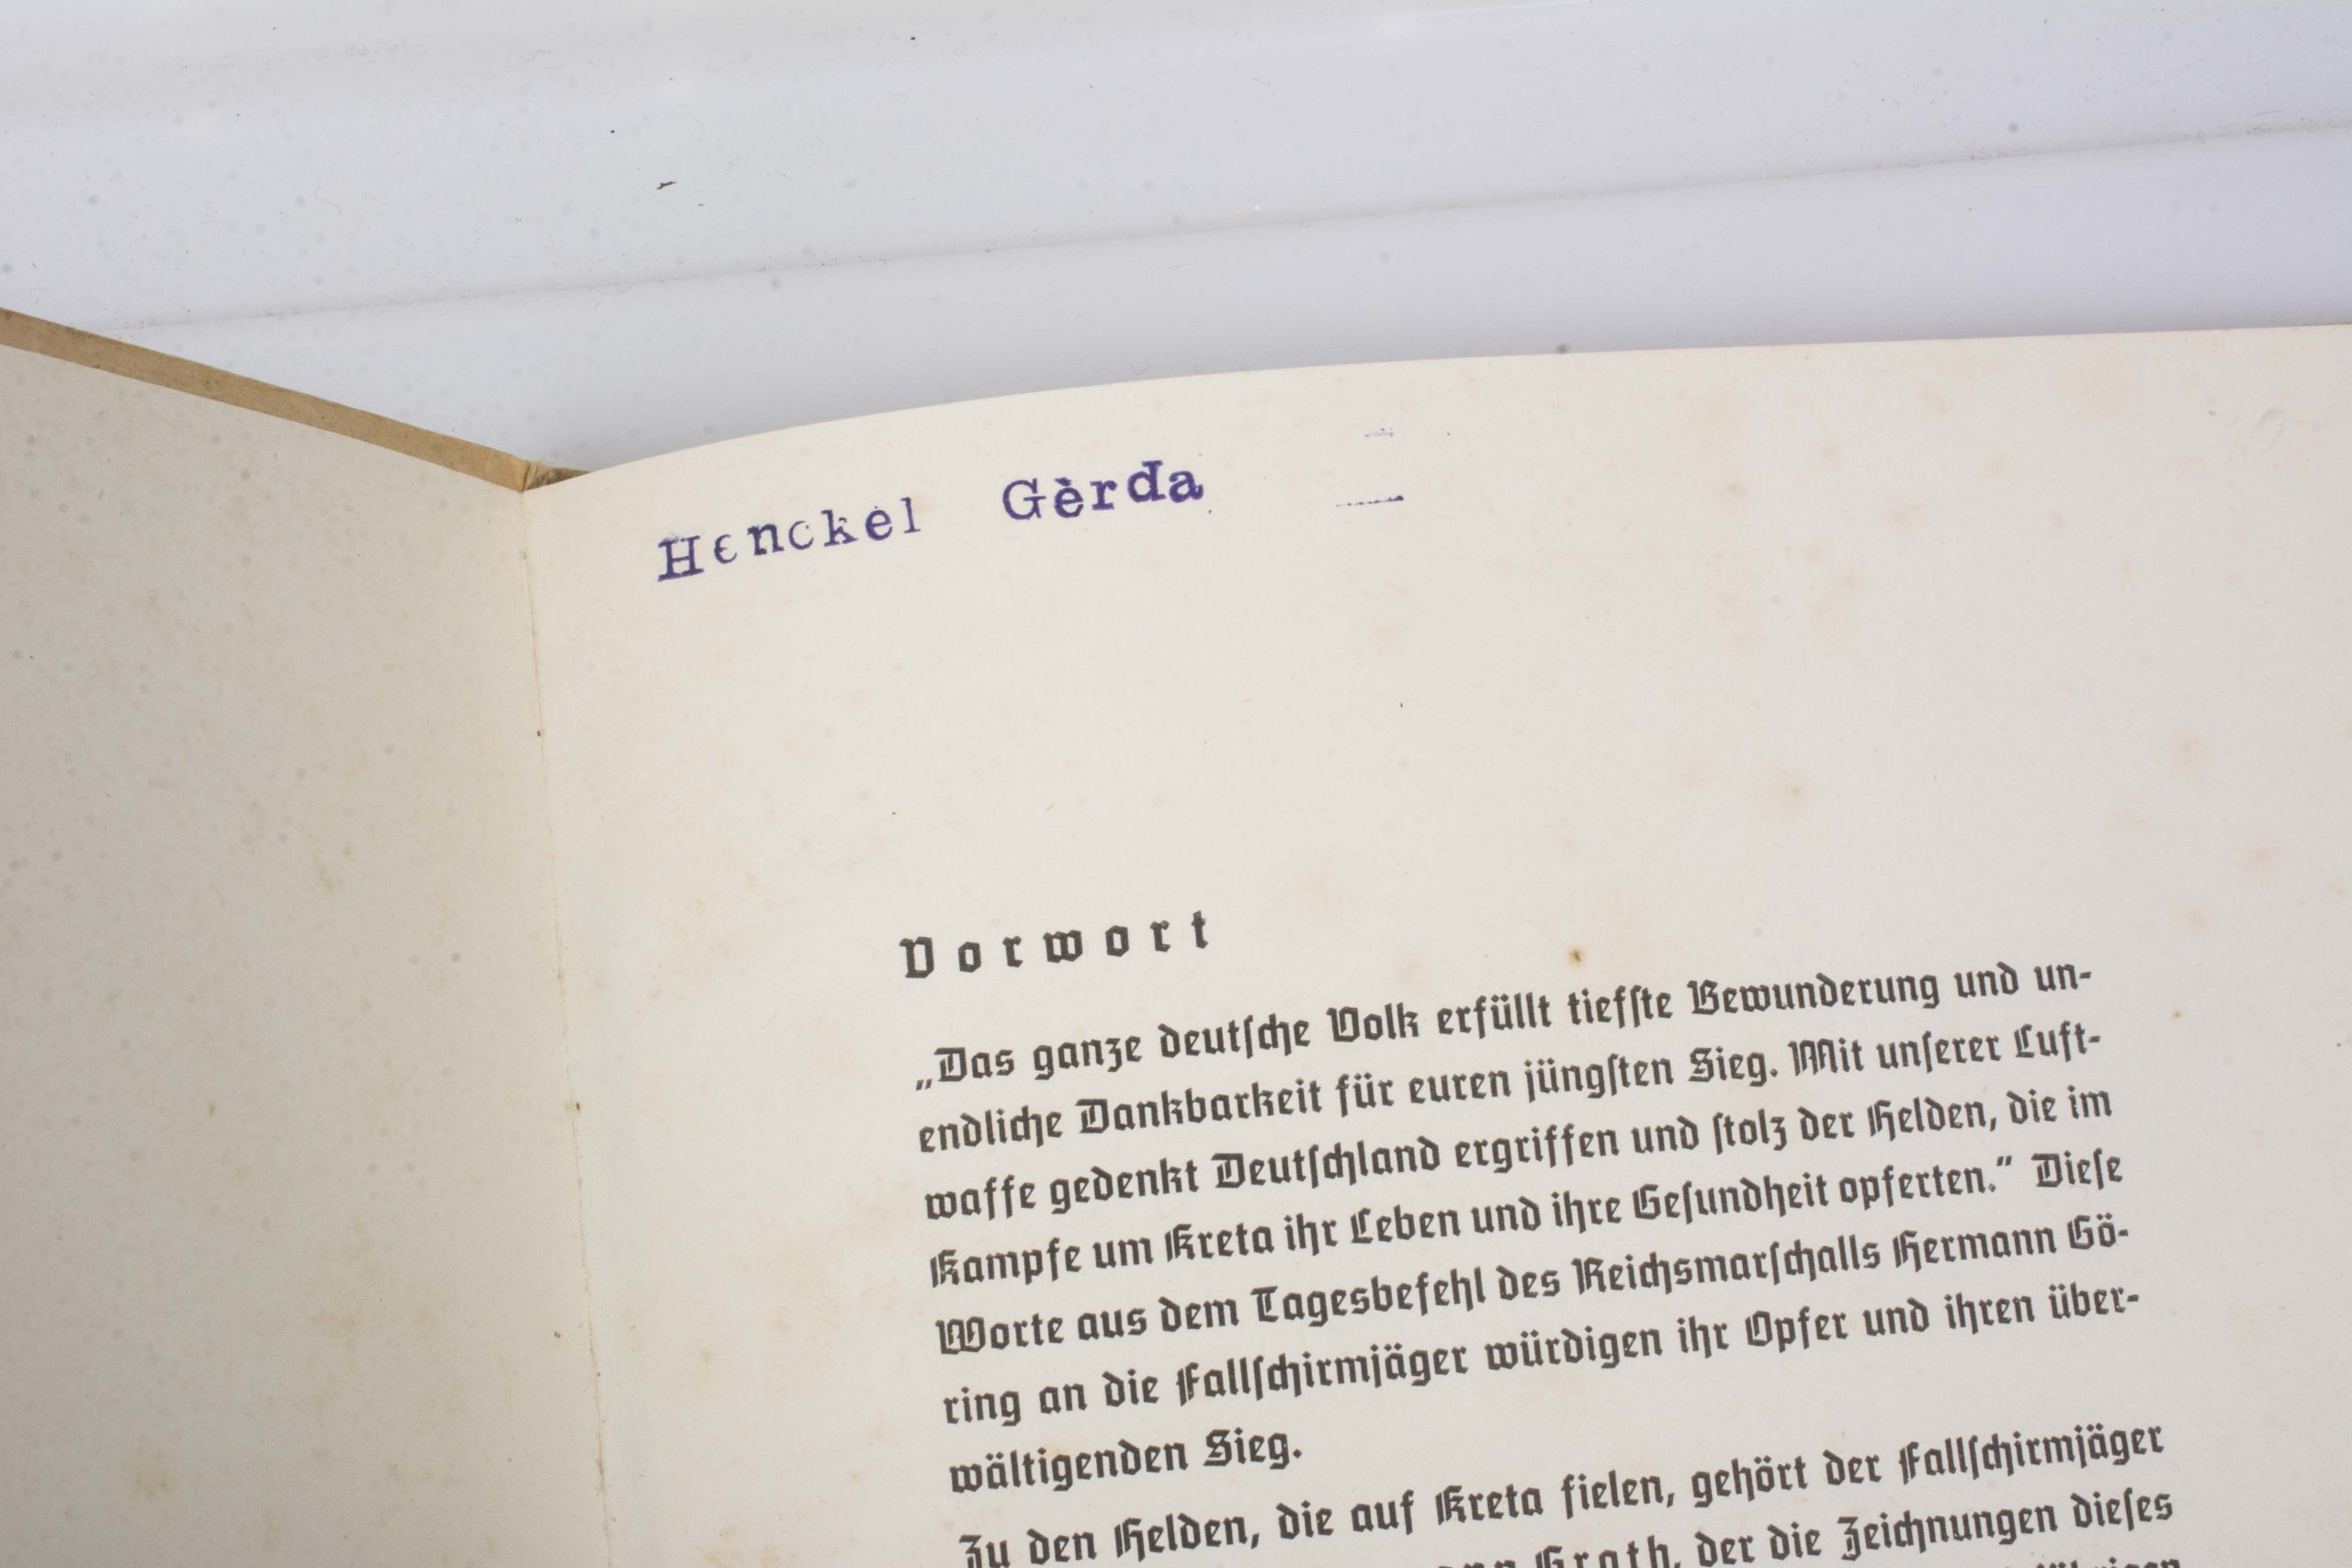 Henckel Gèrda
Vorwort
„Das ganze deutſche Volk erfüllt tiefſte Bewunderung und un-
endliche Dankbarkeit für euren jüngſten Sieg. Mit unſerer Luft-
waffe gedenkt Deutſchland ergriffen und ſtolz der Helden, die im
Kampfe um Kreta ihr Leben und ihre Geſundheit opferten.“ Dieſe
Worte aus dem Tagesbefehl des Reichsmarſchalls Hermann Gö-
ring an die Fallſchirmjäger würdigen ihr Opfer und ihren über-
wältigenden Sieg.
Zu den Helden, die auf Kreta fielen, gehört der Fallſchirmjäger
Grath, der die Zeichnungen dieſes